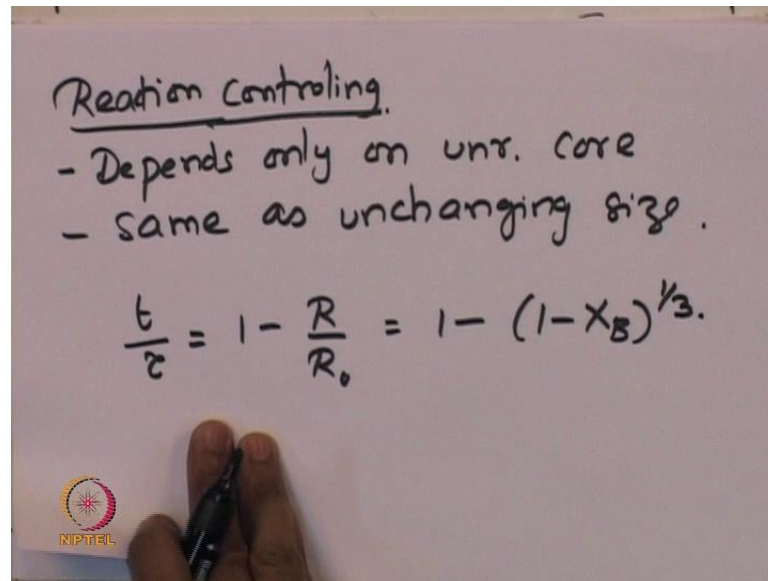 Reation Controling.
- Depends only on unr. core
- same as unchanging size.
t/τ = 1 - R/R₀ = 1 - (1-X_B)^{1/3}.
NPTEL